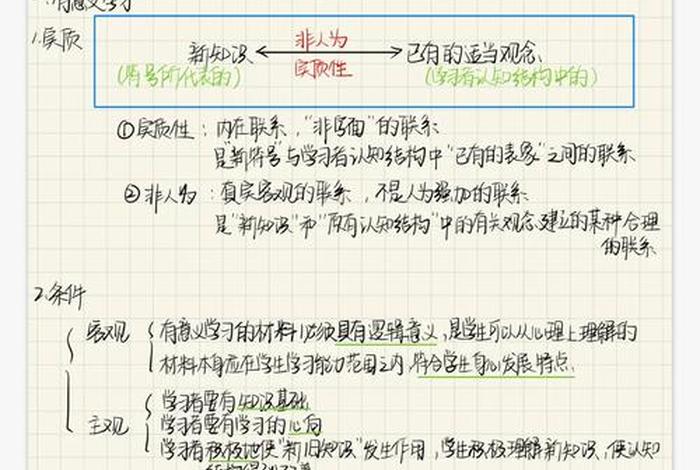 有意义学习
1.实质
非人为
新知识 ⟷ 已有的适当观念
实质性
(符号所代表的) (学习者认知结构中的)
①实质性：内在联系，"非字面"的联系
是"新符号"与学习者认知结构中"已有的表象"之间的联系
②非人为：真实客观的联系，不是人为强加的联系
是"新知识"和"原有认知结构"中的有关观念建立的某种合理
的联系
2.条件
客观
有意义学习的材料必须具有逻辑意义，是学生可以从心理上理解的
材料本身应在学生学习能力范围之内，符合学生身心发展特点.
主观
学习者要有知识基础
学习者要有学习的心向
学习者积极地使"新旧知识"发生作用，学生积极理解新知识、使认知